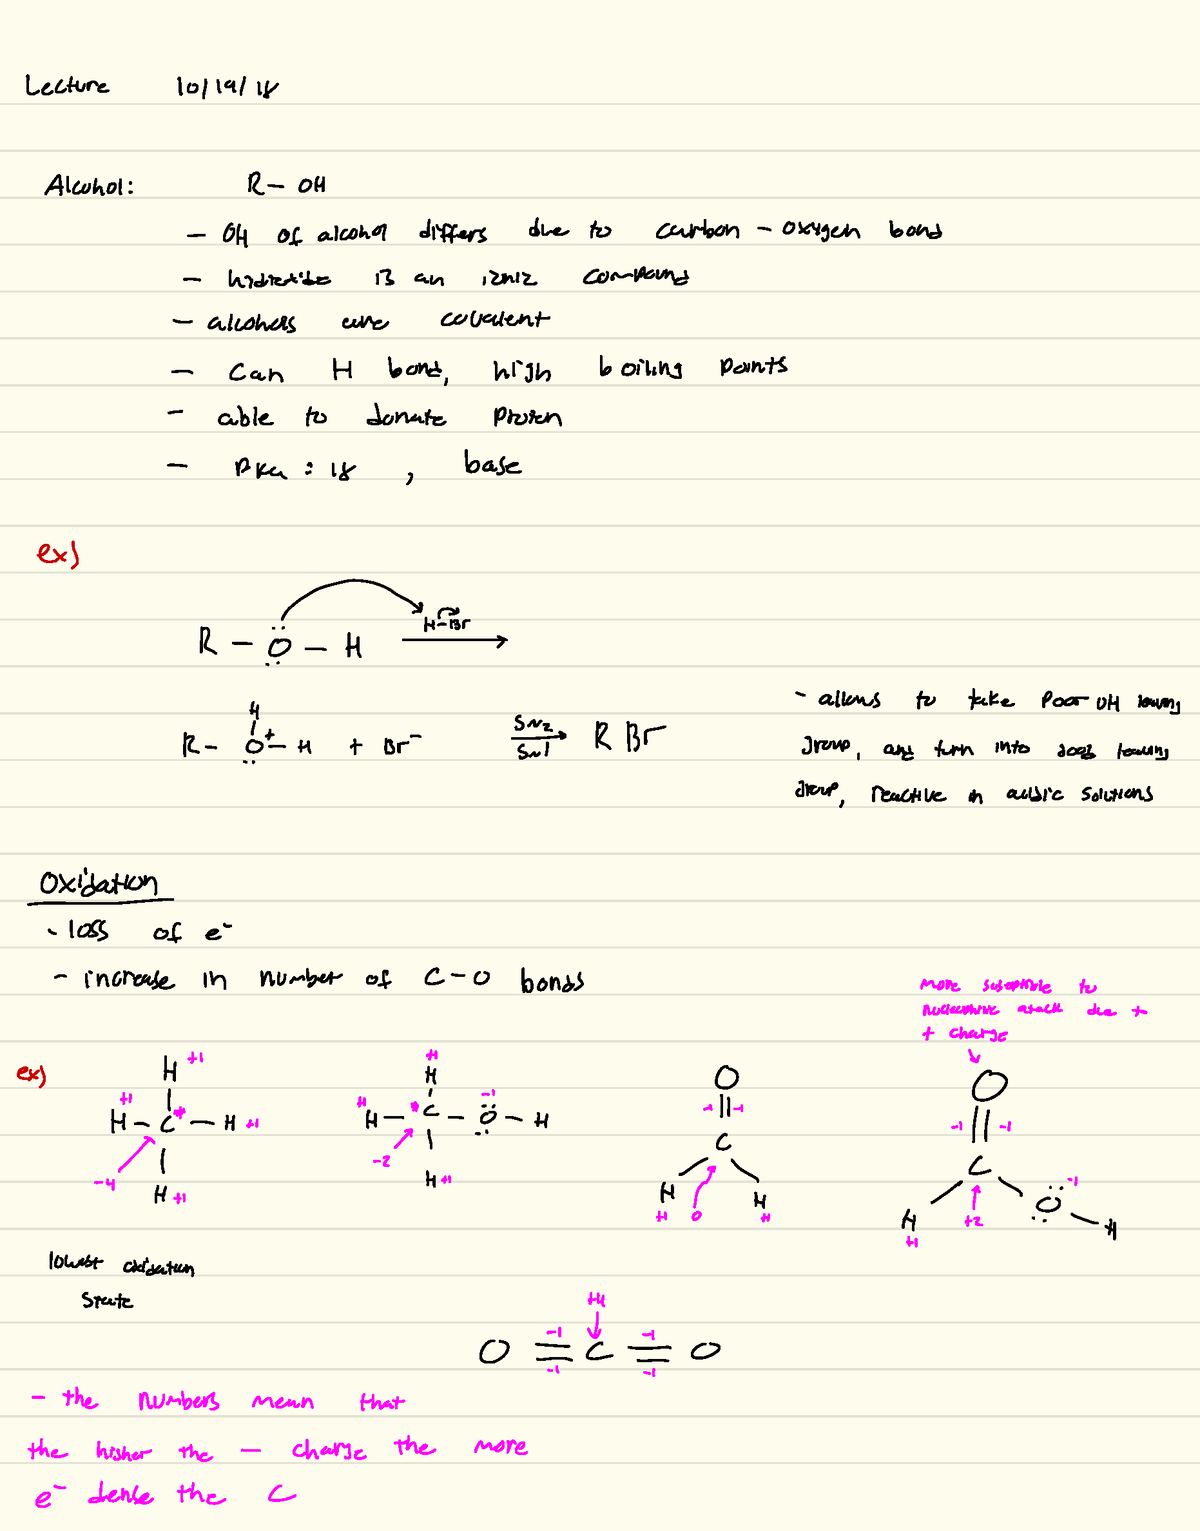 Lecture 10/19/18
Alcohol: R- OH
- OH of alcohol differs due to carbon - oxygen bond
- hydroxide is an ionic compound
- alcohols are covalent
- Can H bond, high boiling points
- able to donate proton
- pKa : 18 , base
ex)
H-Br
R - O - H
H
R- O+- H + Br- SN2 R Br
SN1
- allows to take poor OH leaving
group, and turn into good leaving
group, reactive in acidic solutions
Oxidation
- loss of e-
- increase in number of C-O bonds
more susceptible to
nucleophilic attack due to
+ charge
ex)
H +1
+1
H - C* - H +1
-4
H +1
+1
H
+1 -1
H - *C - O - H
-2
H +1
O
-1 || -1
C
H H
+1 0 +1
O
-1 || -1
C
-1
H +2 O - H
+1
lowest oxidation
state
+4
-1 -1
O = C = O
-1 -1
- the numbers mean that
the higher the - charge the more
e- dense the C